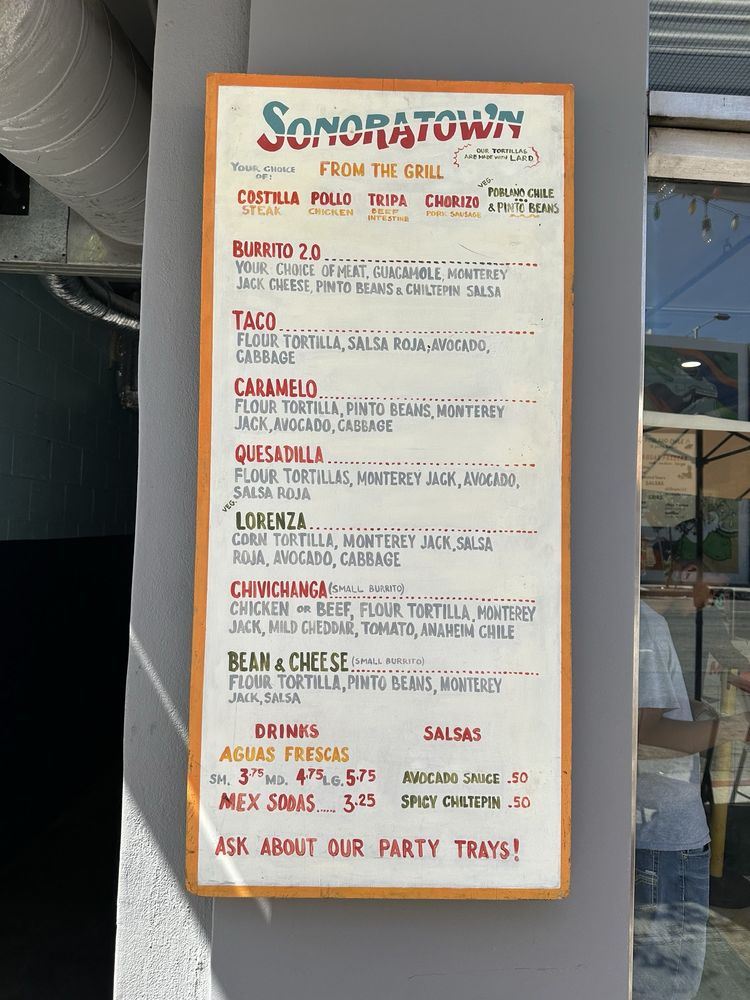 SONORATOWN
OUR TORTILLAS
ARE MADE WITH LARD
YOUR CHOICE
OF:
FROM THE GRILL
COSTILLA
STEAK
POLLO
CHICKEN
TRIPA
BEEF
INTESTINE
CHORIZO
PORK SAUSAGE
VEG.
POBLANO CHILE
& PINTO BEANS
BURRITO 2.0
YOUR CHOICE OF MEAT, GUACAMOLE, MONTEREY
JACK CHEESE, PINTO BEANS & CHILTEPIN SALSA
TACO
FLOUR TORTILLA, SALSA ROJA, AVOCADO,
CABBAGE
CARAMELO
FLOUR TORTILLA, PINTO BEANS, MONTEREY
JACK, AVOCADO, CABBAGE
QUESADILLA
FLOUR TORTILLAS, MONTEREY JACK, AVOCADO,
SALSA ROJA
VEG.
LORENZA
CORN TORTILLA, MONTEREY JACK, SALSA
ROJA, AVOCADO, CABBAGE
CHIVICHANGA (SMALL BURRITO)
CHICKEN OR BEEF, FLOUR TORTILLA, MONTEREY
JACK, MILD CHEDDAR, TOMATO, ANAHEIM CHILE
BEAN & CHEESE (SMALL BURRITO)
FLOUR TORTILLA, PINTO BEANS, MONTEREY
JACK, SALSA
DRINKS
AGUAS FRESCAS
SM. 3.75 MD. 4.75 LG. 5.75
MEX SODAS...... 3.25
SALSAS
AVOCADO SAUCE .50
SPICY CHILTEPIN .50
ASK ABOUT OUR PARTY TRAYS!